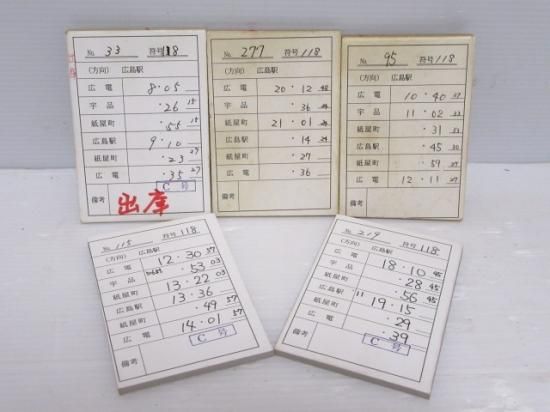 No. 33 符号 118
(方向) 広島駅
広電 8.05
宇品 .26 15
紙屋町 .55 15
広島駅 9.10
紙屋町 .23 27
広電 .35 27
C号
備考 出庫
No. 277 符号 118
(方向) 広島駅
広電 20.12
宇品 .36
紙屋町 21.01
広島駅 .14
紙屋町 .27
広電 .36
備考
No. 95 符号 118
(方向) 広島駅
広電 10.40
宇品 11.02
紙屋町 .31
広島駅 .45
紙屋町 .59
広電 12.11
備考
No. 115 符号 118
(方向) 広島駅
広電 12.30 37
宇品 .53 03
紙屋町 13.22 03
広島駅 13.36
紙屋町 .49 57
広電 14.01 57
C号
備考
No. 219 符号 118
(方向) 広島駅
広電 18.10 45
宇品 .28 45
紙屋町 .56 45
広島駅 19.15
紙屋町 .29
広電 .39
C号
備考